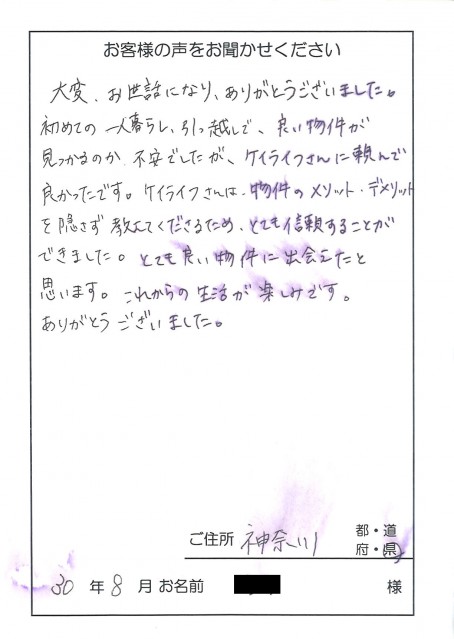 お客様の声をお聞かせください
大変、お世話になり、ありがとうございました。
初めての一人暮らし、引っ越しで、良い物件が
見つかるのか不安でしたが、ケイライフさんに頼んで
良かったです。ケイライフさんは、物件のメリット・デメリット
を隠さず教えてくださるため、とても信頼することが
できました。とても良い物件に出会えたと
思います。これからの生活が楽しみです。
ありがとうございました。
ご住所 神奈川 都・道
府・県
30年8月お名前 様